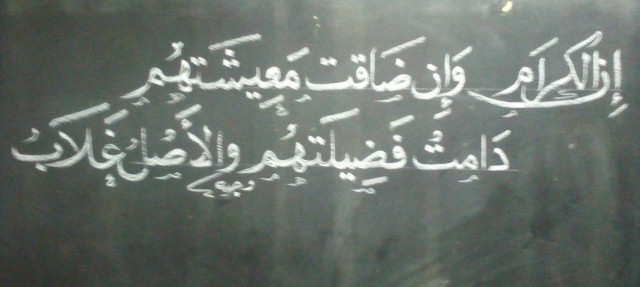 إن الكرام وإن ضاقت معيشتهم
دامت فضيلتهم والأصل غلاب